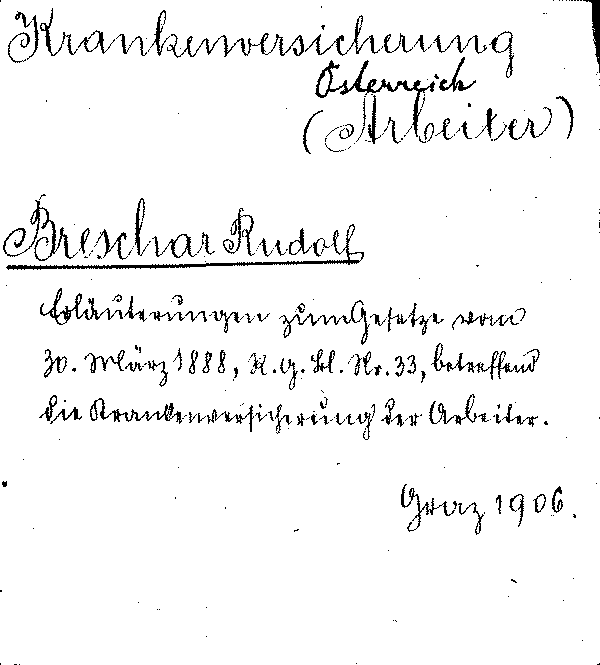 Krankenversicherung
Österreich
(Arbeiter)
Breschar Rudolf
Erläuterungen zum Gesetze vom
30. März 1888, R. G. Bl. Nr. 33, betreffend
die Krankenversicherung der Arbeiter.
Graz 1906.